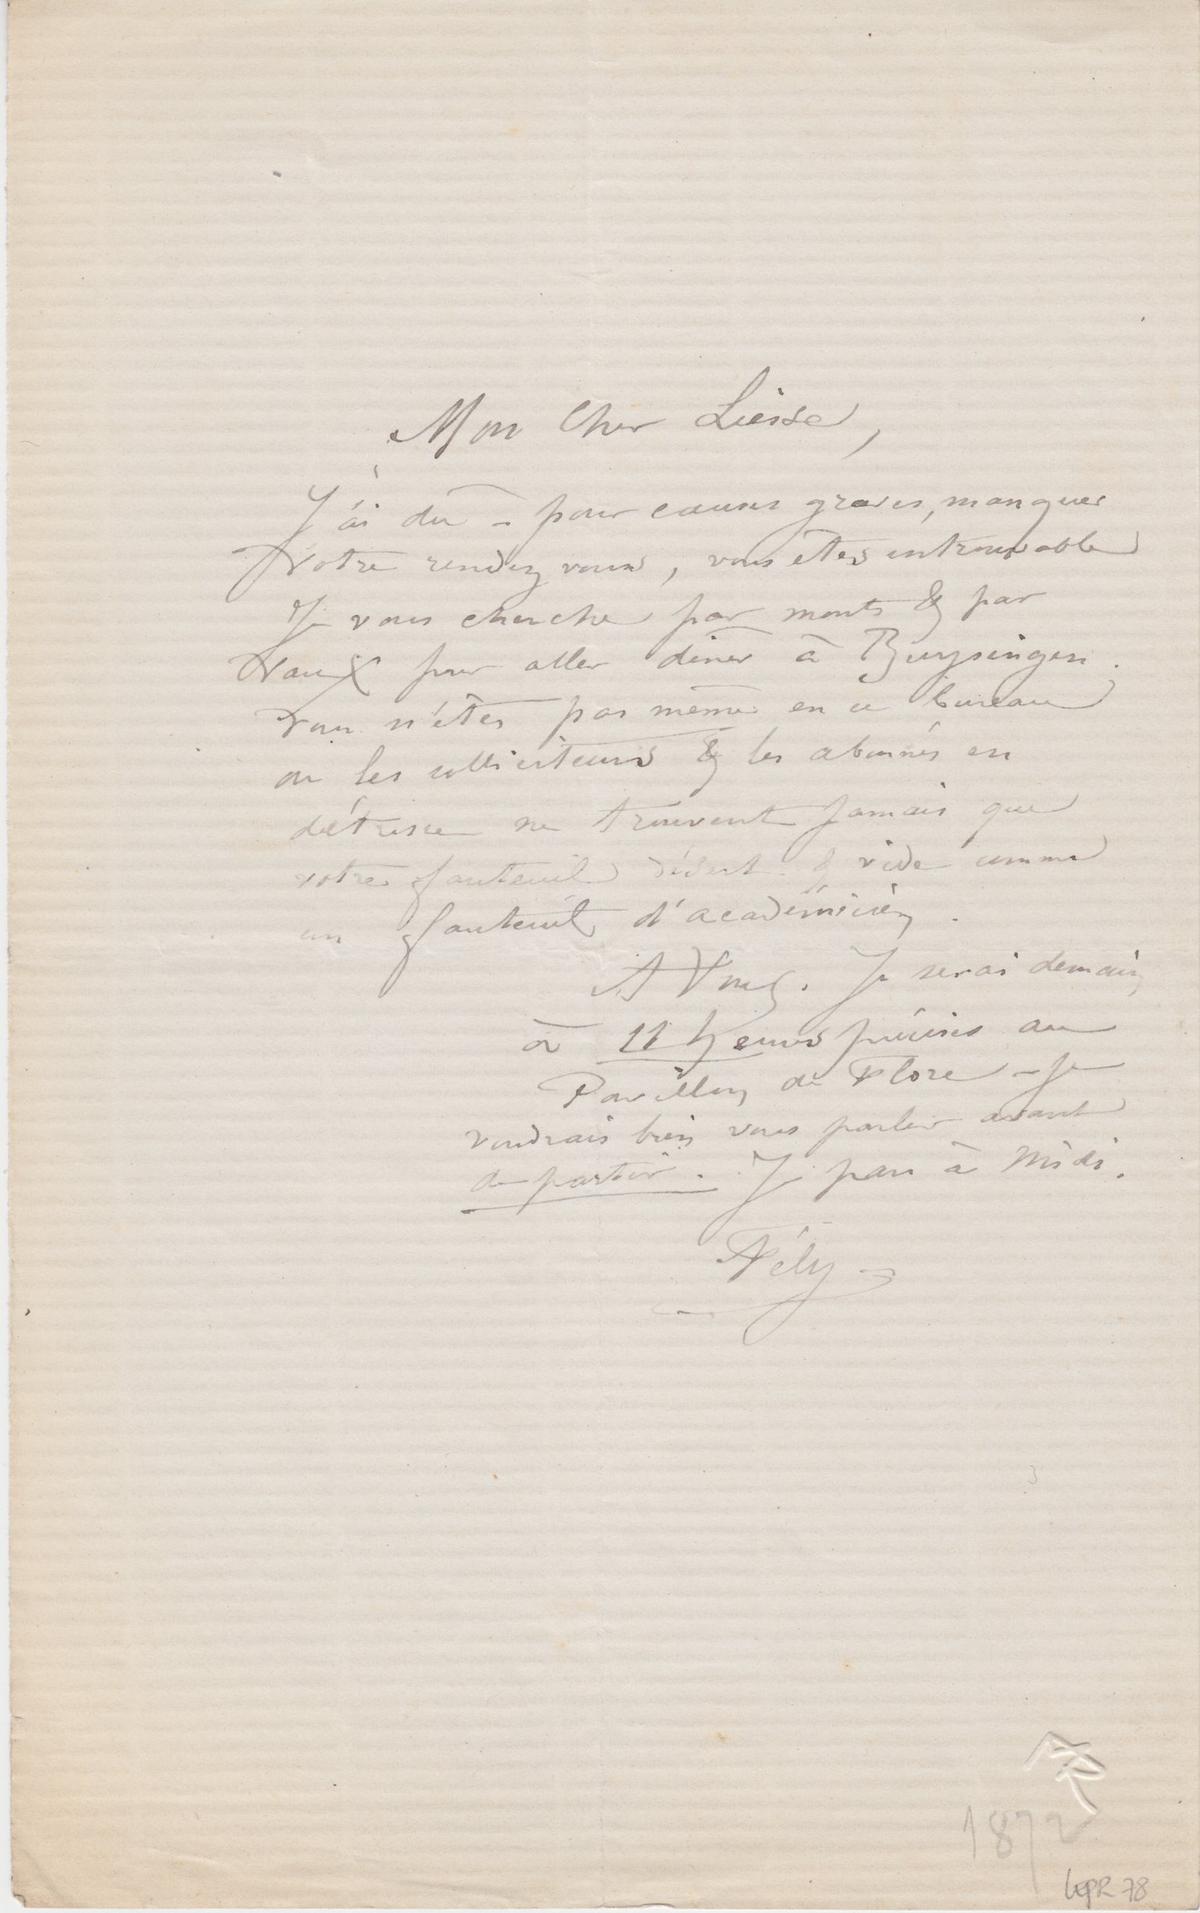 Mon Cher Liesse,
J'ai dû – pour causes graves, manquer
Votre rendez vous, vous êtes introuvable
Je vous cherche par monts & par
Vaux pour aller diner à Buysingen.
Vous n'êtes pas même en ce bureau
ou les solliciteurs & les abonnés en
détresse ne trouvent jamais que
votre fauteuil désert & vide comme
un fauteuil d'académicien.
A Vous. Je serai demain
à 11 heures précises au
Pavillon de Flore – Je
voudrais bien vous parler avant
de partir. Je pars à Midi.
Fély
1872
LEPR 78